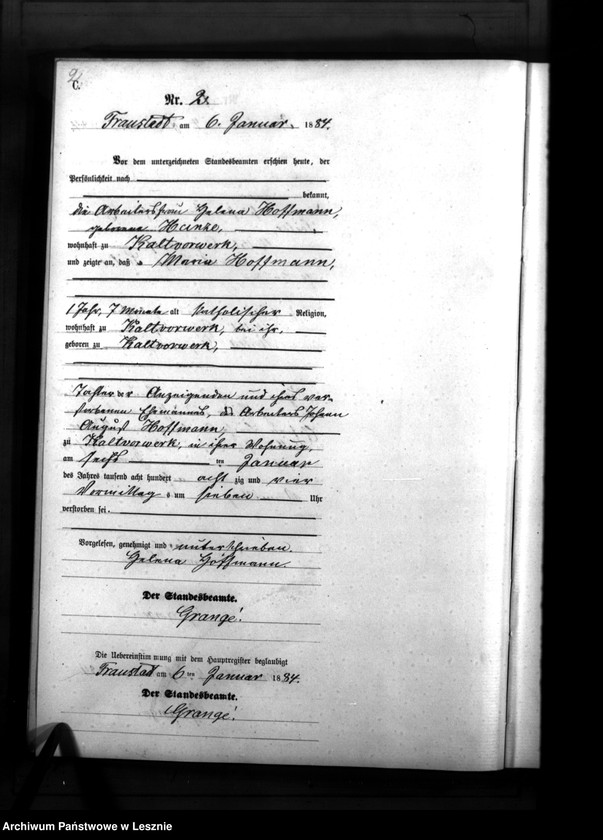 C.
Nr. 2.
Fraustadt am 6. Januar 1884.
Vor dem unterzeichneten Standesbeamten erschien heute, der
Persönlichkeit nach
bekannt,
die Arbeitersfrau Helena Hoffmann,
geborene Hanke,
wohnhaft zu Kaltvorwerk,
und zeigte an, daß Maria Hoffmann,
1 Jahr, 7 Monate alt katholischer Religion,
wohnhaft zu Kaltvorwerk, bei ihr,
geboren zu Kaltvorwerk,
Tochter der Anzeigenden und ihres ver-
storbenen Ehemannes, des Arbeiters Johann
August Hoffmann,
zu Kaltvorwerk, in ihrer Wohnung,
am sechs ten Januar
des Jahres tausend acht hundert acht zig und vier
Vormittags um sieben Uhr
verstorben sei.
Vorgelesen, genehmigt und unterschrieben.
Helena Hoffmann.
Der Standesbeamte.
Grangé.
Die Uebereinstimmung mit dem Hauptregister beglaubigt
Fraustadt am 6 ten Januar 1884.
Der Standesbeamte.
Grangé.
Archiwum Państwowe w Lesznie